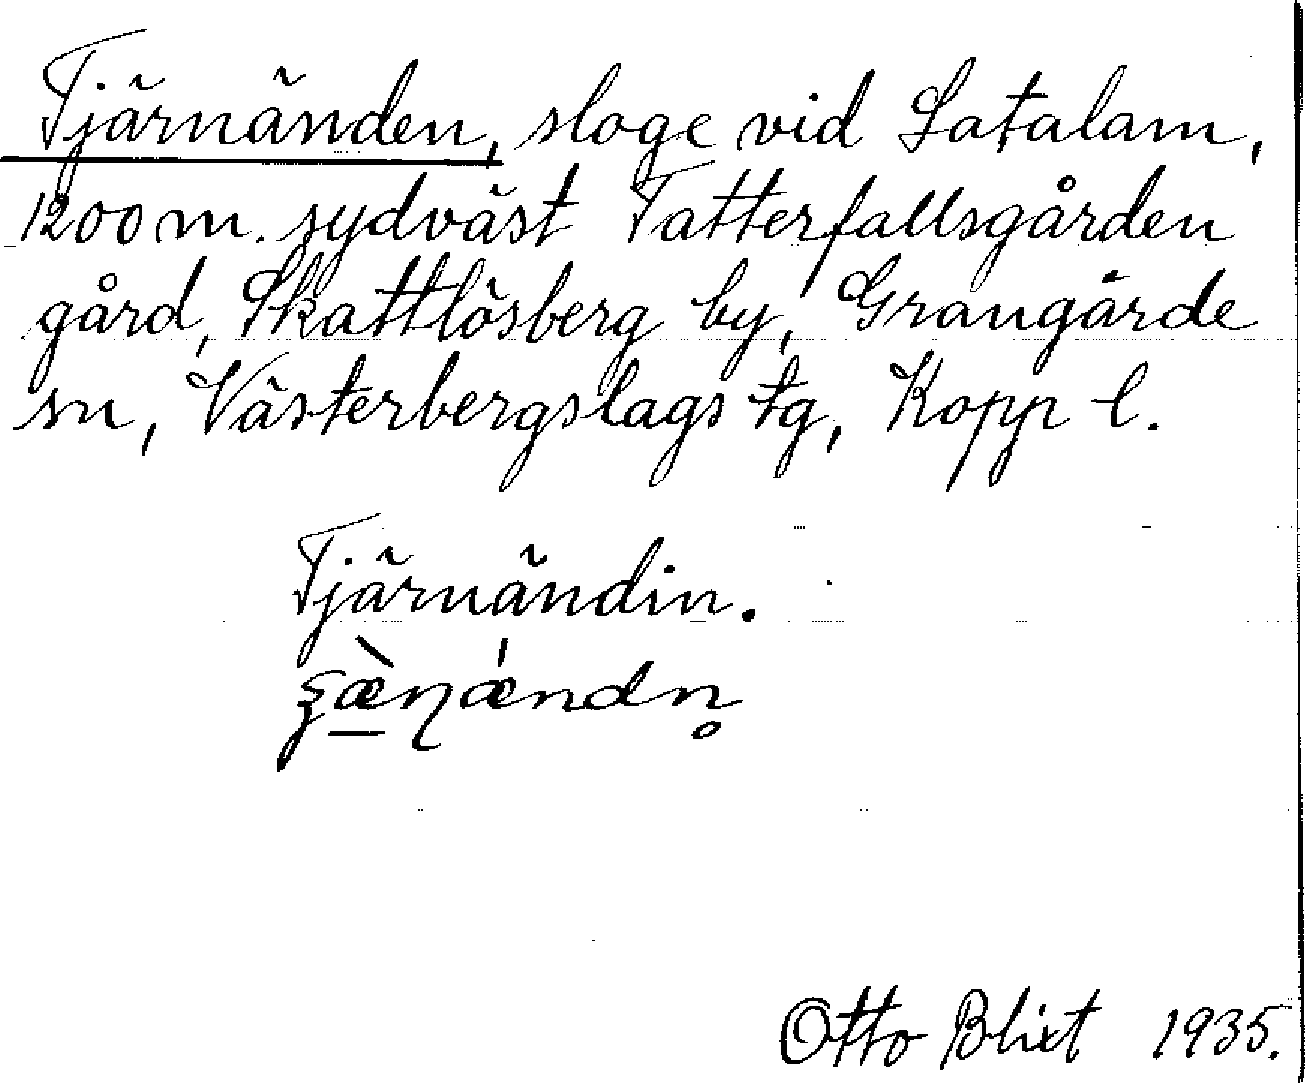 Tjärnänden, sloge vid Latalam,
1200 m. sydväst Tatterfallsgården
gård, Skattlösberg by, Grangärde
sn, Västerbergslags tg, Kopp l.
Tjärnändin.
Otto Blixt 1935.